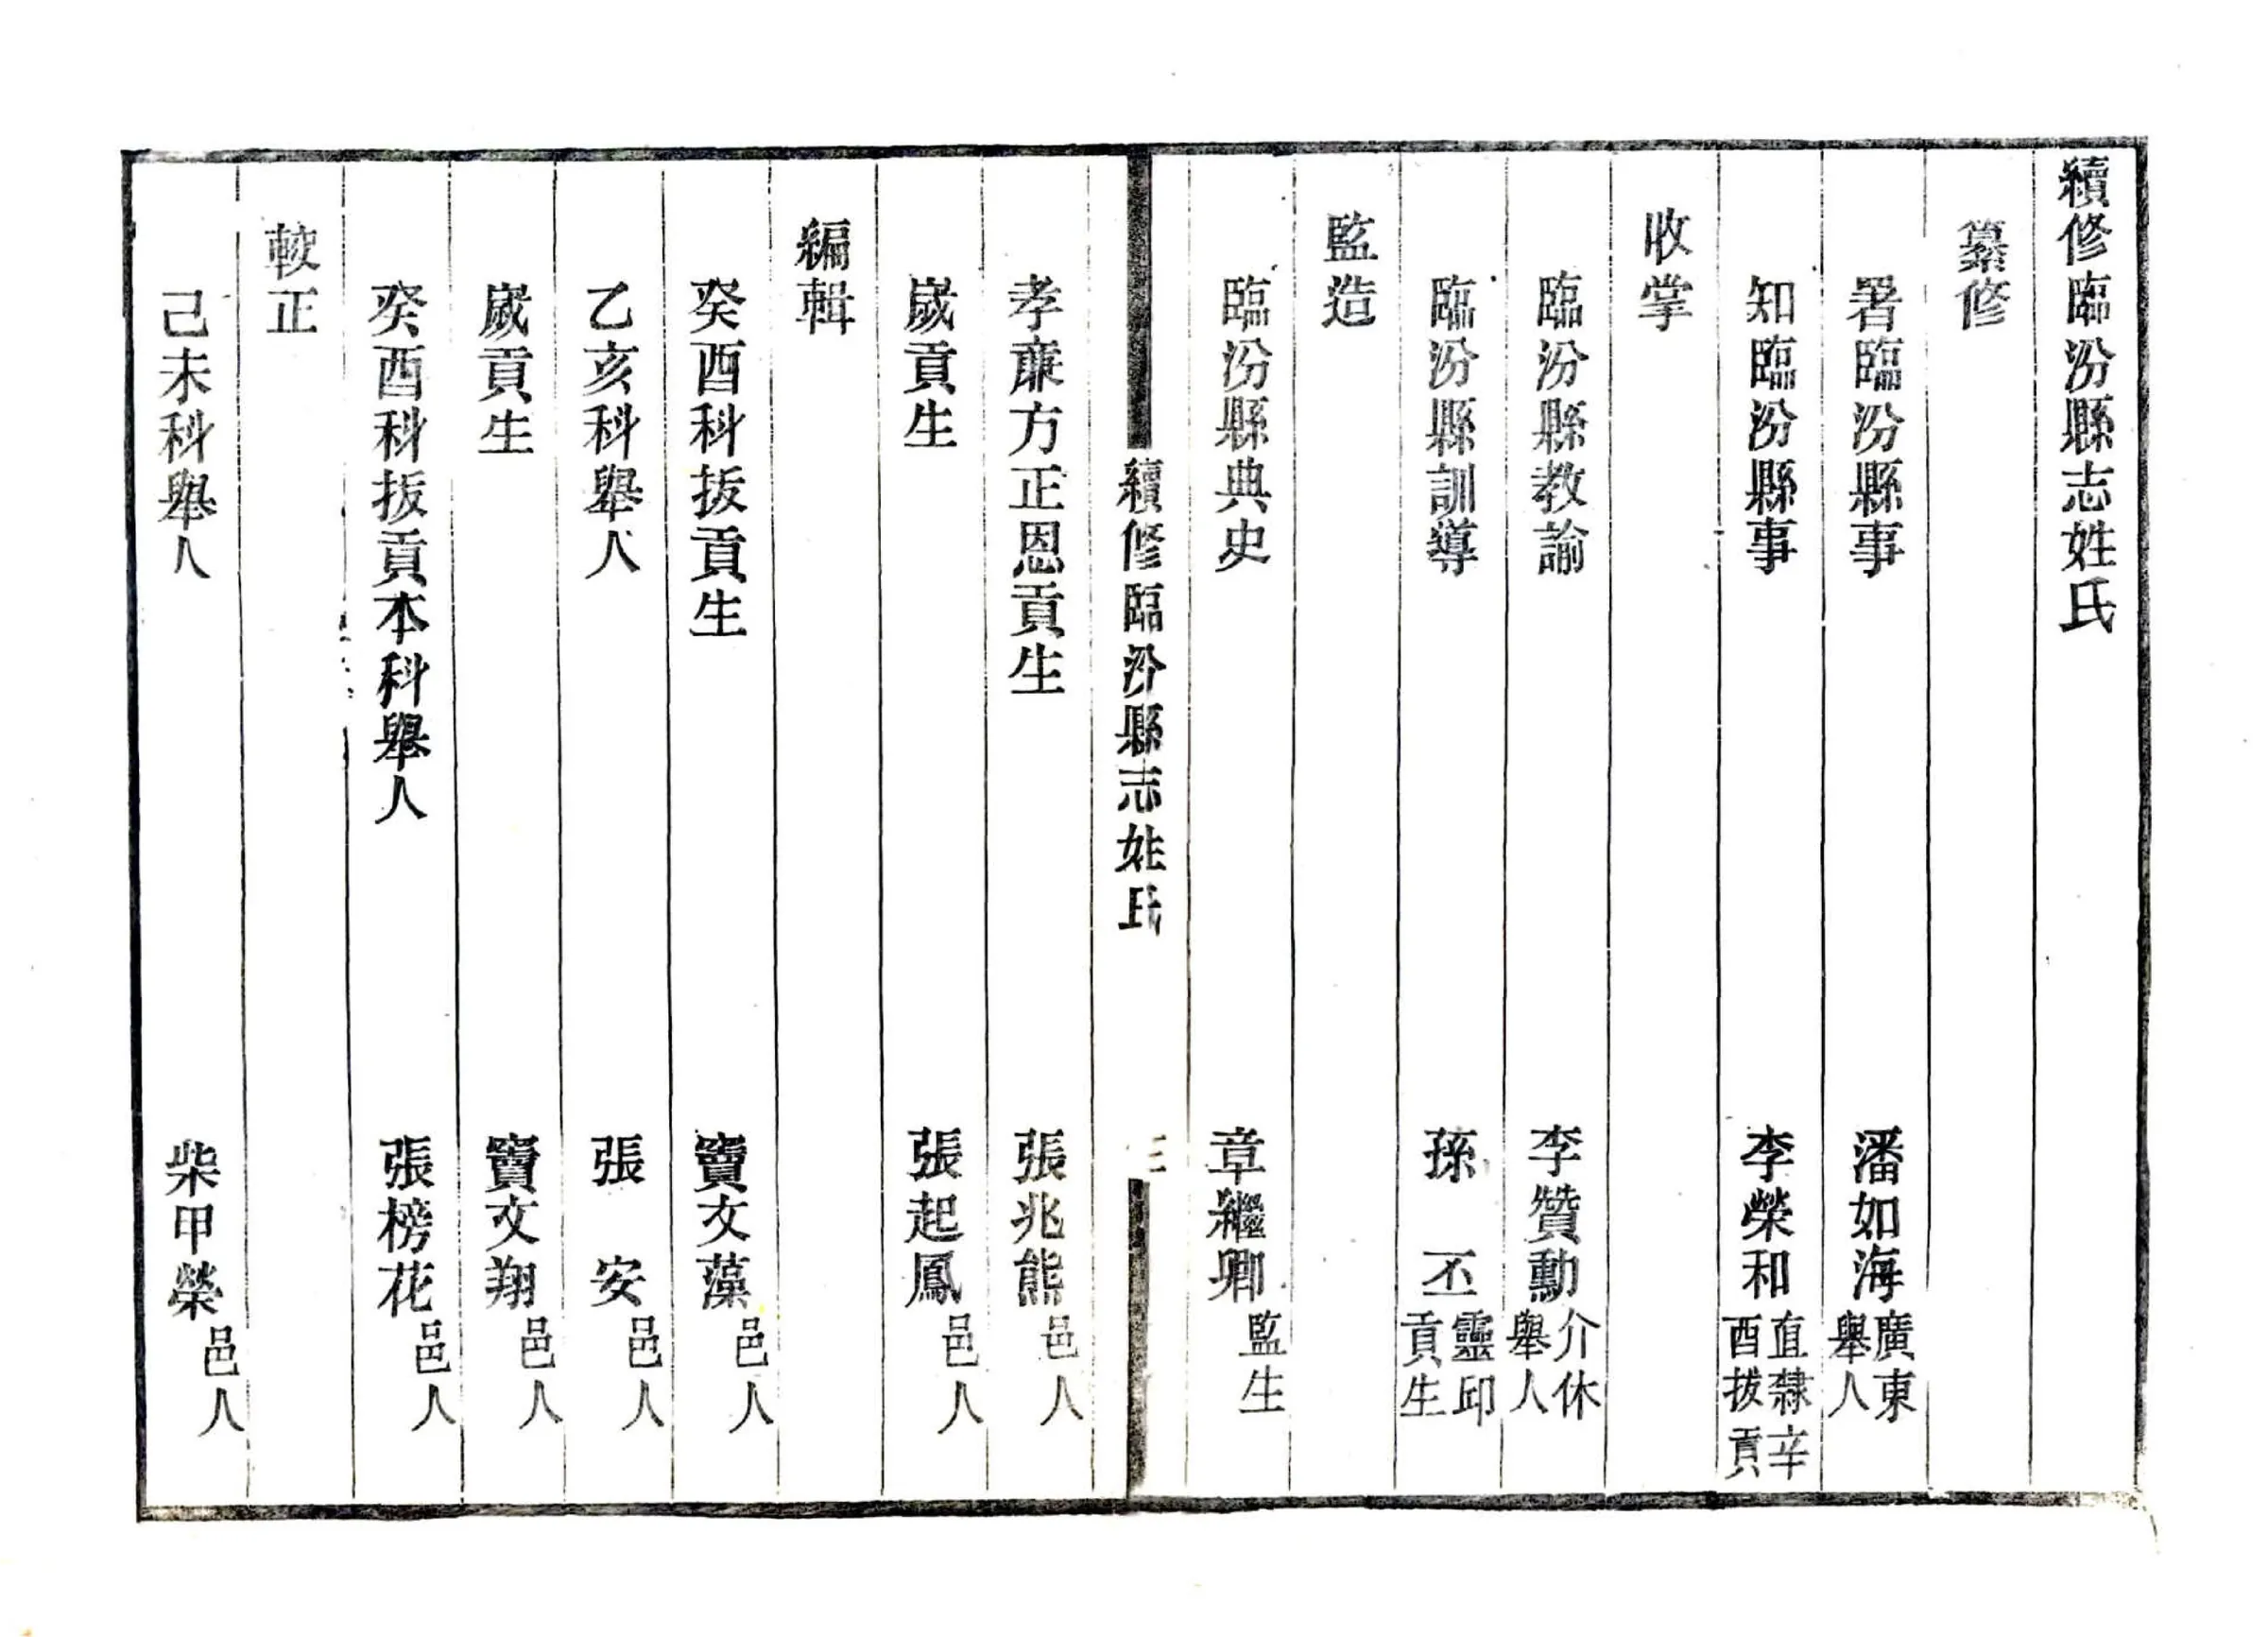 續修臨汾縣志姓氏
纂修
署臨汾縣事 潘如海 廣東舉人
知臨汾縣事 李榮和 直隸辛酉拔貢
收掌
臨汾縣教諭 李贊勳 介休舉人
臨汾縣訓導 孫 丕 靈邱貢生
監造
臨汾縣典史 章繼卿 監生
續修臨汾縣志姓氏
孝廉方正恩貢生 張兆熊 邑人
歲貢生 張起鳳 邑人
編輯
癸酉科拔貢生 竇文藻 邑人
乙亥科舉人 張 安 邑人
歲貢生 竇文翔 邑人
癸酉科拔貢本科舉人 張榜花 邑人
較正
己未科舉人 柴甲榮 邑人